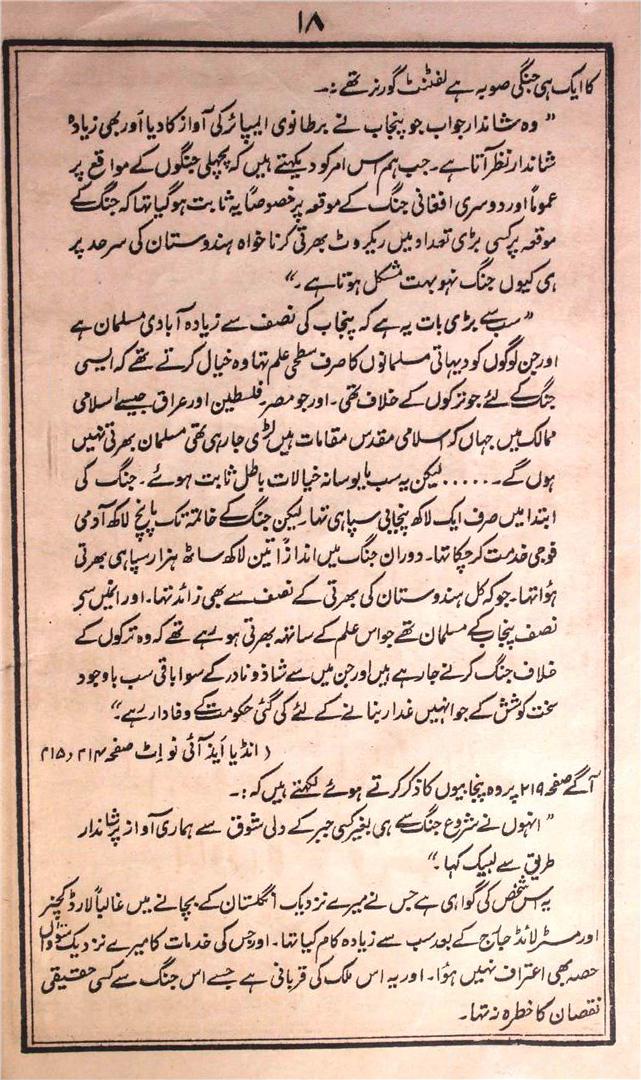 ۱۸
کا ایک ہی جنگی صوبہ ہے لفٹنٹ گورنر تھے :۔
" وہ شاندار جواب جو پنجاب نے برطانوی ایمپائر کی آواز کا دیا اَور بھی زیادہ
شاندار نظر آتا ہے۔ جب ہم اس امر کو دیکھتے ہیں کہ پچھلی جنگوں کے مواقع پر
عموماً اور دوسری افغانی جنگ کے موقعہ پر خصوصاً یہ ثابت ہو گیا تھا کہ جنگ کے
موقعہ پر کسی بڑی تعداد میں ریکروٹ بھرتی کرنا خواہ ہندوستان کی سرحد پر
ہی کیوں جنگ نہو بہت مشکل ہوتا ہے ۔"
" سب سے بڑی بات یہ ہے کہ پنجاب کی نصف سے زیادہ آبادی مسلمان ہے
اور جن لوگوں کو دیہاتی مسلمانوں کا صرف سطحی علم تھا وہ خیال کرتے تھے کہ ایسی
جنگ کے لئے جو ترکوں کے خلاف تھی۔ اور جو مصر فلسطین اور عراق جیسے اسلامی
ممالک میں جہاں کہ اسلامی مقدس مقامات ہیں لڑی جا رہی تھی مسلمان بھرتی نہیں
ہوں گے۔ ...... لیکن یہ سب مایوسانہ خیالات باطل ثابت ہوئے۔ جنگ کی
ابتدا میں صرف ایک لاکھ پنجابی سپاہی تھا لیکن جنگ کے خاتمہ تک پانچ لاکھ آدمی
فوجی خدمت کر چکا تھا۔ دوران جنگ میں اندازاً تین لاکھ ساٹھ ہزار سپاہی بھرتی
ہؤا تھا۔ جو کہ کل ہندوستان کی بھرتی کے نصف سے بھی زائد تھا۔ اور انمیں سے
نصف پنجاب کے مسلمان تھے جو اس علم کے ساتھ بھرتی ہو رہے تھے کہ وہ ترکوں کے
خلاف جنگ کرنے جا رہے ہیں اور جن میں سے شاذ و نادر کے سوا باقی سب باوجود
سخت کوشش کے جو انہیں غدار بنانے کے لئے کی گئی حکومت کے وفادار رہے۔"
( انڈیا ایذ آئی نو اِٹ صفحہ ۴۱۴ و ۴۱۵
آگے صفحہ ۲۱۹ پر وہ پنجابیوں کا ذکر کرتے ہوئے لکھتے ہیں کہ :۔
" انہوں نے شروع جنگ سے ہی بغیر کسی جبر کے دلی شوق سے ہماری آواز پر شاندار
طریق سے لبیک کہا۔"
یہ اس شخص کی گواہی ہے جس نے میرے نزدیک انگلستان کے بچانے میں غالباً لارڈ کچنر
اور مسٹر لائڈ جارج کے بعد سب سے زیادہ کام کیا تھا۔ اور جس کی خدمات کا میرے نزدیک سَوواں
حصہ بھی اعتراف نہیں ہؤا۔ اور یہ اس ملک کی قربانی ہے جسے اس جنگ سے کسی حقیقی
نقصان کا خطرہ نہ تھا۔